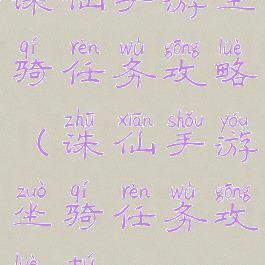 诛仙手游坐
qí rèn wù gōng lüè
骑任务攻略
zhū xiān shǒu yóu
(诛仙手游
zuò qí rèn wù gōng
坐骑任务攻
lüè